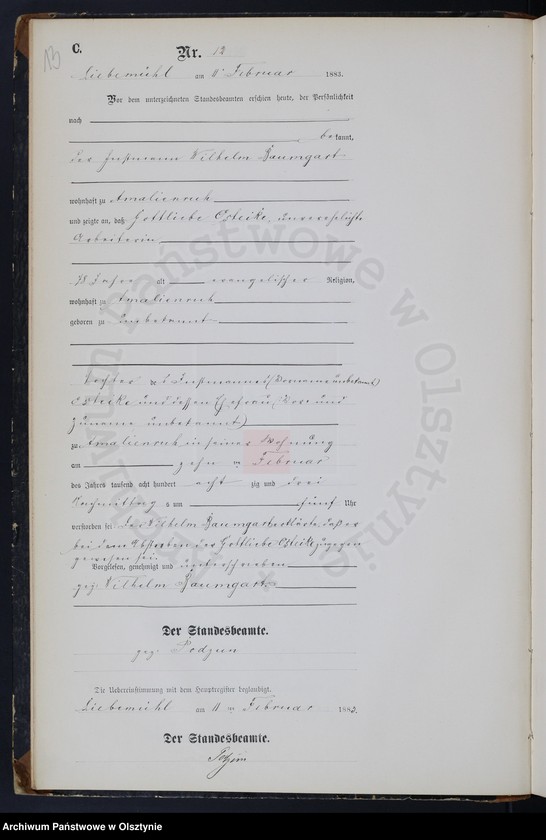 13
C.
Nr. 12
Liebemühl am 11t Februar 1883.
Vor dem unterzeichneten Standesbeamten erschien heute, der Persönlichkeit
nach
bekannt,
der Instmann Wilhelm Baumgart
wohnhaft zu Amalienruh
und zeigte an, daß Gottliebe Osteike, unverehelichte
Arbeiterin
78 Jahre alt evangelischer Religion,
wohnhaft zu Amalienruh
geboren zu unbekannt
Tochter des Instmannes (Vorname unbekannt)
Osteike und dessen Ehefrau (Vor und
Zuname unbekannt)
zu Amalienruh in seiner Wohnung
am zehn ten Februar
des Jahres tausend acht hundert acht zig und drei
Nachmittags um fünf Uhr
verstorben sei der Wilhelm Baumgart erklärte daß er
bei dem Absterben der Gottliebe Osteike zugegen
gewesen sei
Vorgelesen, genehmigt und unterschrieben
gez. Wilhelm Baumgart
Der Standesbeamte.
gez. Podzun
Die Uebereinstimmung mit dem Hauptregister beglaubigt.
Liebemühl am 11 ten Februar 1883.
Der Standesbeamte.
Archiwum Państwowe w Olsztynie
Archiwum Państwowe w Olsztynie